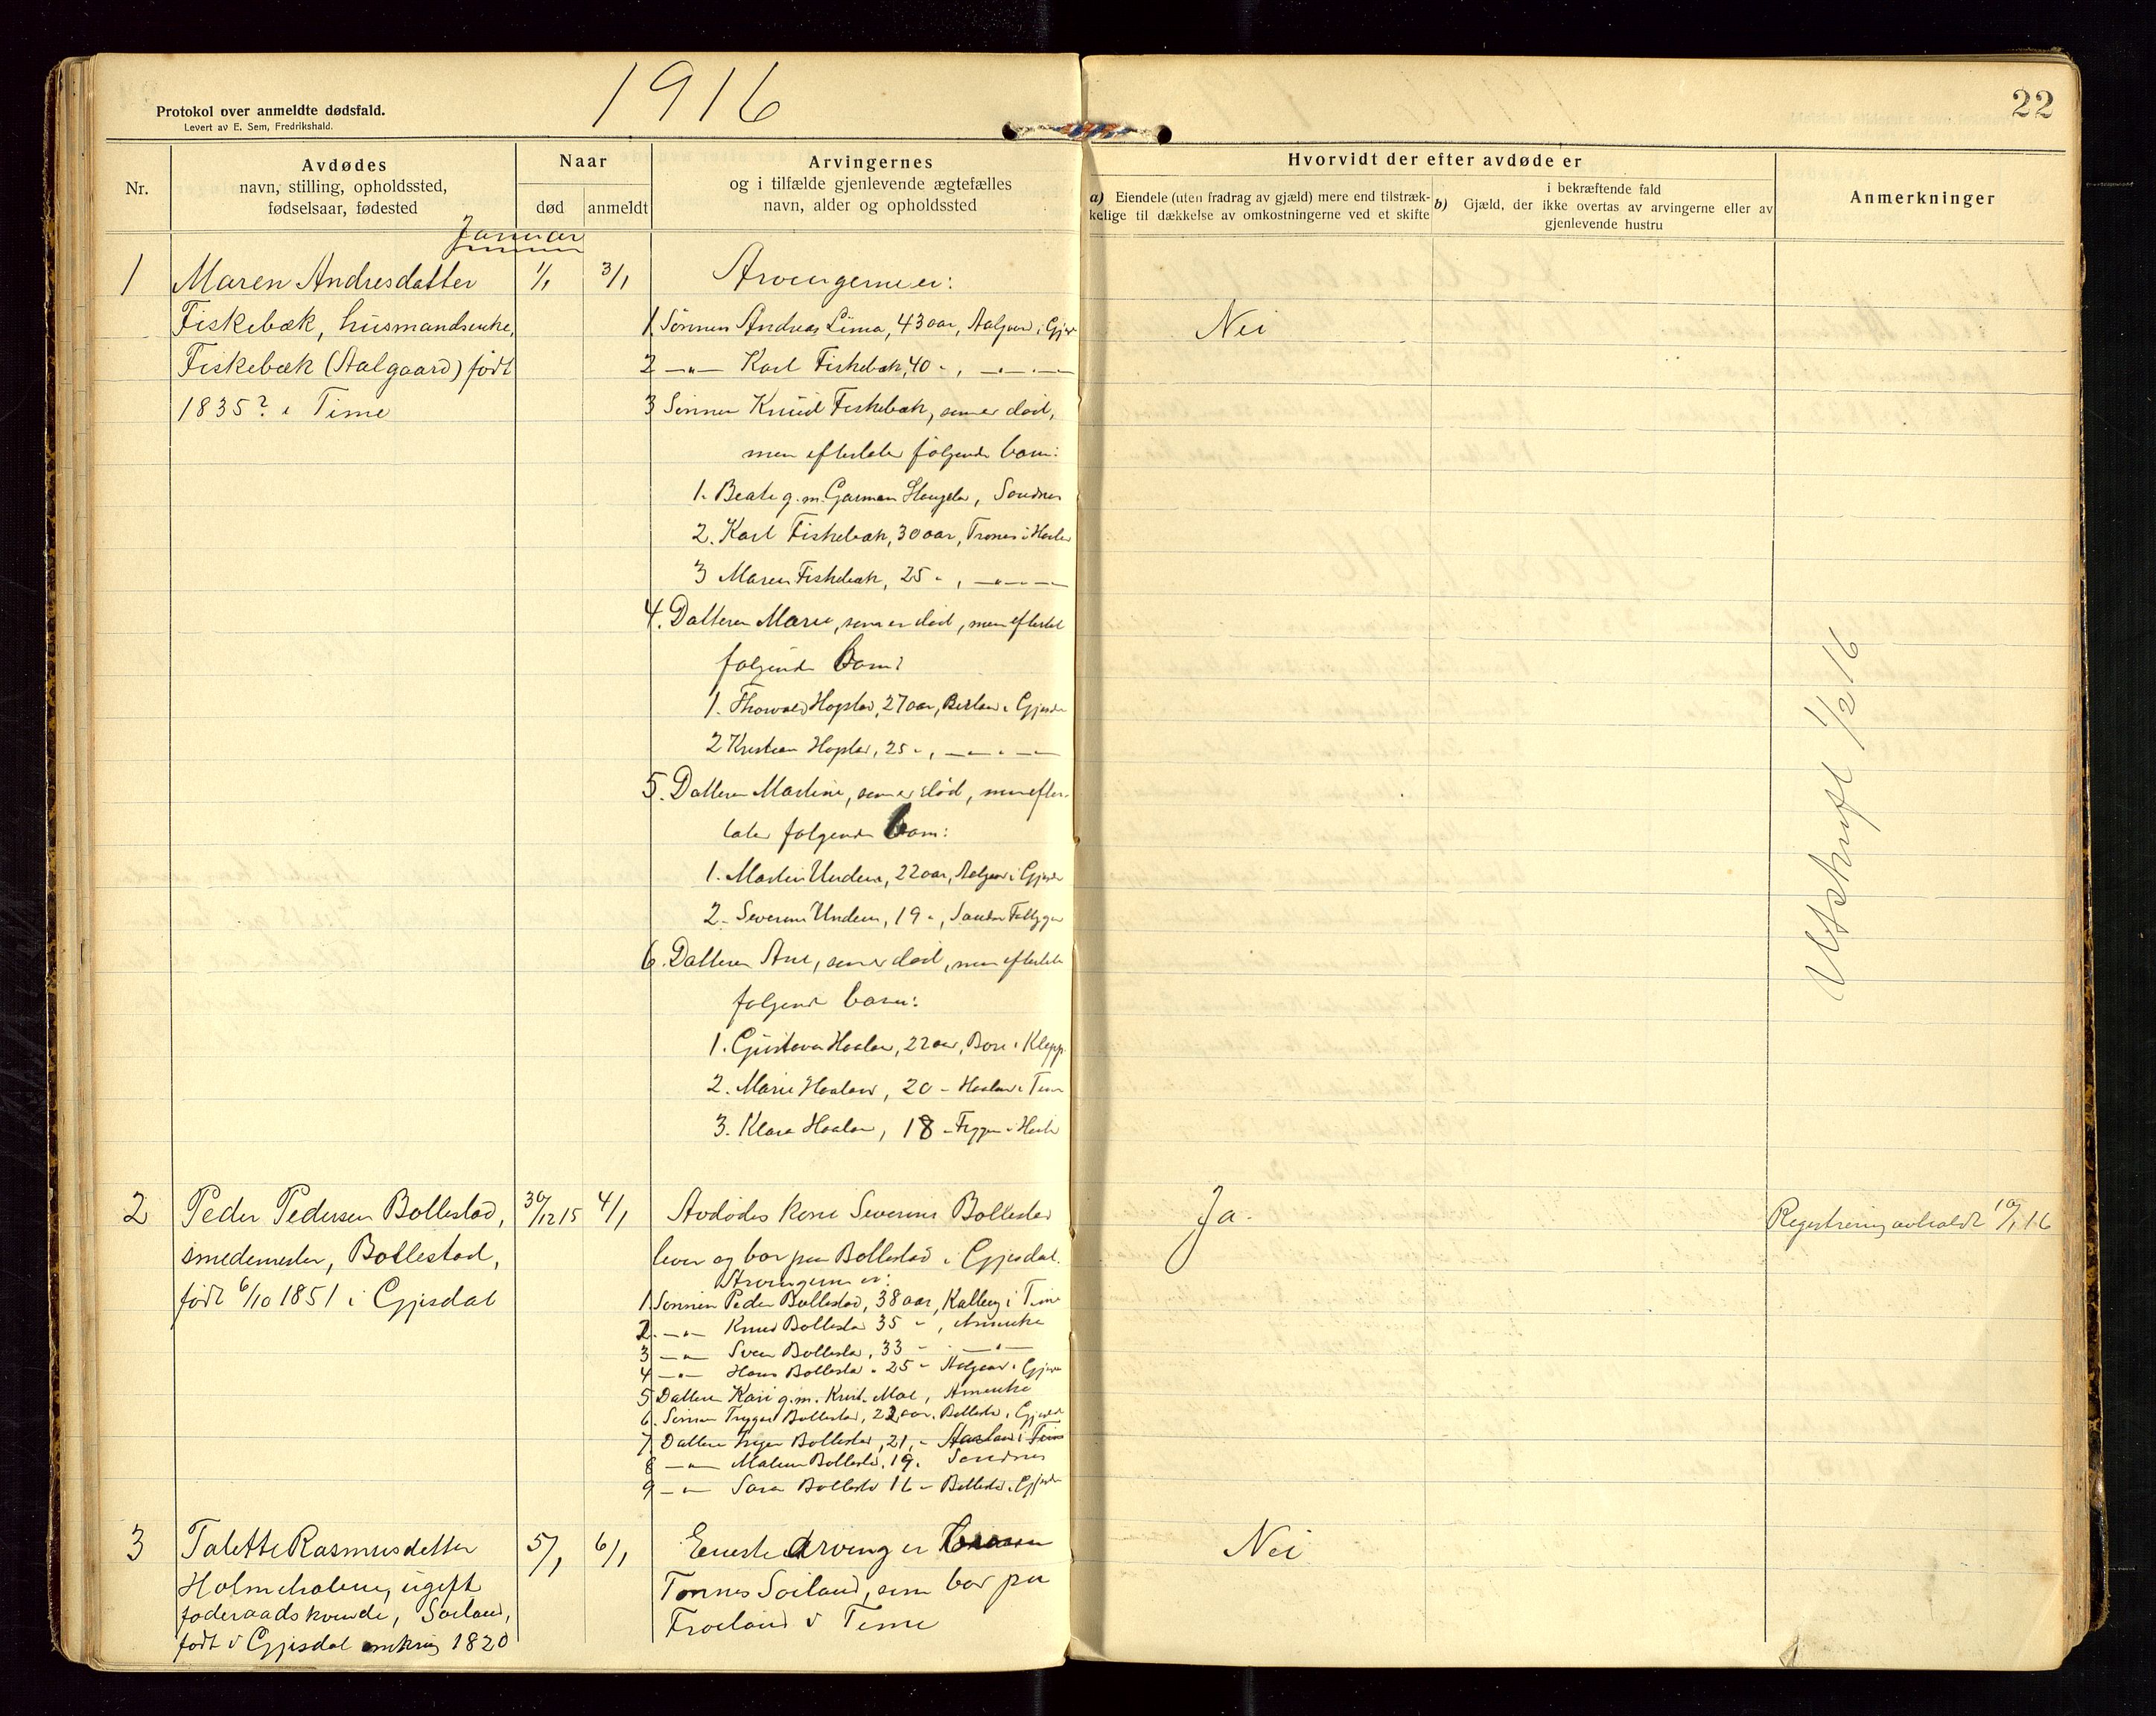 1916
22
Protokol over anmeldte dødsfald.
Levert av E. Sem, Fredrikshald.
Nr.
Avdødes
navn, stilling, opholdssted,
fødselsaar, fødested
Naar
død
anmeldt
Arvingernes
og i tilfælde gjenlevende ægtefælles
navn, alder og opholdssted
Hvorvidt der efter avdøde er
a) Eiendele (uten fradrag av gjæld) mere end tilstræk-
kelige til dækkelse av omkostningerne ved et skifte
b) i bekræftende fald
Gjæld, der ikke overtas av arvingerne eller av
gjenlevende hustru
Anmerkninger
Januar
1 Maren Andresdatter 1/1 3/1 Arvingerne er:
Fiskebæk, husmandsenke, 1. Sönnen Andreas Lima, 43 aar, Aalgaard i Gjesd Nei
Fiskebæk (Aalgaard) født 2 —"— Karl Fiskebæk, 40 -, —"—
1835? i Time 3 Sönnen Knud Fiskebæk, som er död,
men efterlater følgende barn:
1. Beate g.m. Garman Skeigela, Sandnes
2. Karl Fiskebæk, 30 aar, Trones i
3 Maren Fiskebæk, 25 -, —"—
4. Datteren Marie, som er død, men efterlat
følgende barn:
1. Thorvald Hogstad, 27 aar, i Gjesda
2 Kristian Hogstad, 25 -, —"—
5. Datteren Martine, som er død, men efter-
later følgende barn:
1. Martin Undem, 22 aar, Aalgaard i Gjesda
2. Severine Undem, 19 -,
6. Datteren Ane, som er död, men efterlate
følgende barn:
1. Gustava Haaland, 22 aar, Bore i Klepp
2. Marie Haaland, 20 - Haaland i Time
3. Klara Haaland, 18 -
Utskrift 1/2 16
2 Peder Pedersen Bollestad, 30/12 15 4/1 Avdødes kone Severine Bollestad Ja. Registrering avholdt 10/1 16
smedemester, Bollestad, lever og bor paa Bollestad i Gjesdal.
født 6/10 1851 i Gjesdal Arvingerne er:
1 Sønnen Peder Bollestad, 38 aar, Kalberg i Time
2. —"— Knud Bollestad 35 -, Amerika
3 —"— Sven Bollestad, 33 - —"—
4 —"— Hans Bollestad - 25 - Aalgaard i Gjesda
5 Datteren Kari g.m. Krist. Moe, Amerika
6. Sønnen Trygve Bollestad, 22 aar, Bollestad i Gjesdal
7. Datteren Inger Bollestad, 21, - Haaland i Time
8 —"— Malene Bollestad, 19. Sandnes
9 —"— Sara Bollestad 16 - Bollestad i Gjesda
3 Talette Rasmusdatter 5/1 6/1 Eneste arving er Nei
Holmeholene, ugift Tønnes Soiland, som bor paa
føderaadskvinde, Soiland, Frøeland i Time
født i Gjesdal omkring 1820